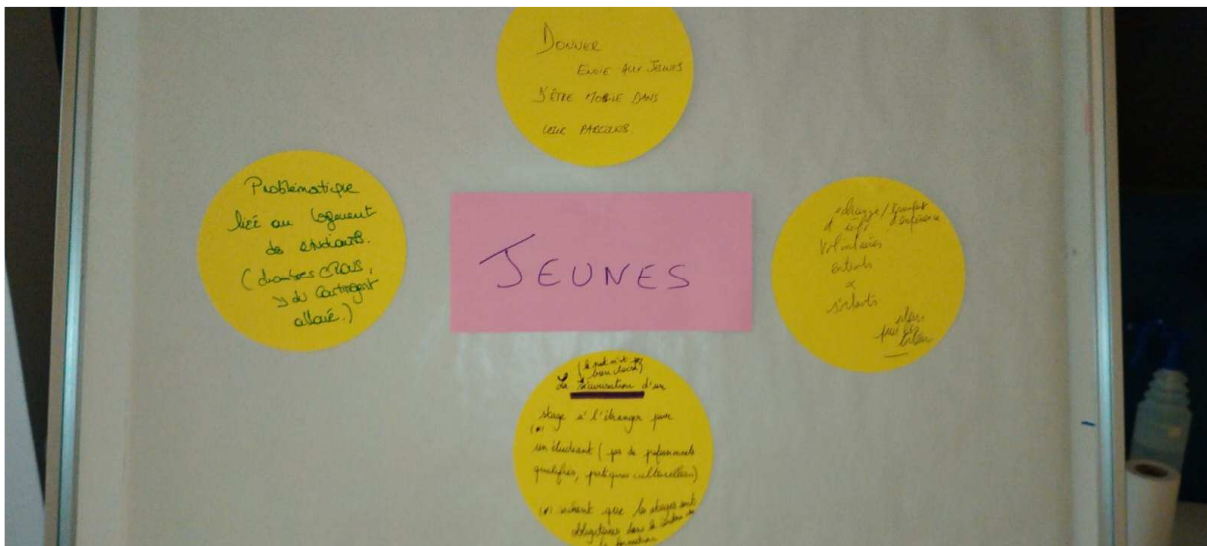 DONNER
ENVIE AUX JEUNES
D'ÊTRE MOBILE DANS
LEUR PARCOURS.
Problématique
liée au logement
des étudiants.
(chambres CROUS,
du contingent
alloué.)
JEUNES
échange/transfert
d'expérience
Volontaires
entrants
&
sortants
(le mot n'est pas
bien choisi)
La sécurisation d'un
stage à l'étranger pour
un étudiant (pas de professionnels
qualifiés, pratiques culturelles)
(*) sachant que les stages sont
obligatoires dans le
formation